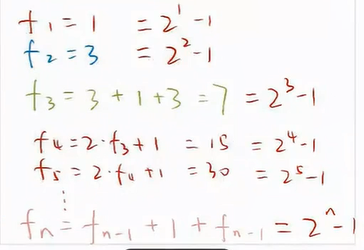 f₁ = 1 = 2¹-1
f₂ = 3 = 2²-1
f₃ = 3 + 1 + 3 = 7 = 2³-1
f₄ = 2·f₃+1 = 15 = 2⁴-1
f₅ = 2·f₄+1 = 30 = 2⁵-1
⋮
fₙ = fₙ₋₁ + 1 + fₙ₋₁ = 2ⁿ-1